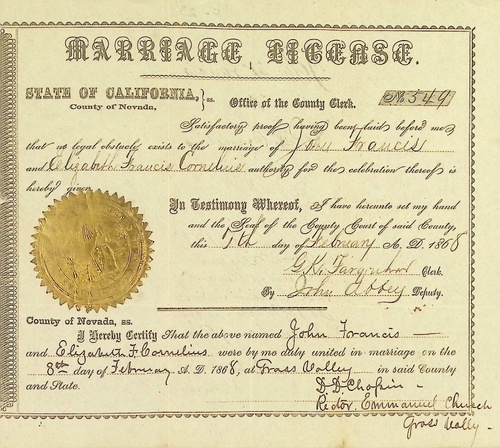 MARRIAGE LICENSE.
STATE OF CALIFORNIA, } ss.
County of Nevada,
Office of the County Clerk.
No 549
Satisfactory proof having been laid before me
that no legal obstacle exists to the marriage of John Francis
and Elizabeth Francis Cornelius authority for the celebration thereof is
hereby given
In Testimony Whereof, I have hereunto set my hand
and the Seal of the County Court of said County,
this 7th day of February A. D. 1868
G. K. Clerk.
By John Deputy.
County of Nevada, ss.
I Hereby Certify That the above named John Francis
and Elizabeth F. Cornelius were by me duly united in marriage on the
8th day of February A. D. 1868, at Grass Valley
and State. D. D. Chapin
Rector, Emmanuel Church
Grass Vally.